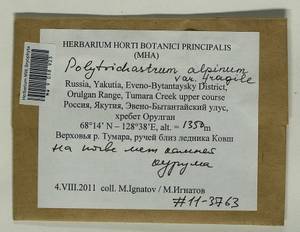 HERBARIUM HORTI BOTANICI PRINCIPALIS
(MHA)
Polytrichastrum alpinum
var. fragile
Russia, Yakutia, Eveno-Bytantaysky District,
Orulgan Range, Tumara Creek upper course
Россия, Якутия, Эвено-Бытантайский улус,
хребет Орулган
68°14' N – 128°38'E, alt. = 1350 m
Верховья р. Тумара, ручей близ ледника Ковш
на почве
4.VIII.2011 coll. M.Ignatov / М.Игнатов
#11-3763